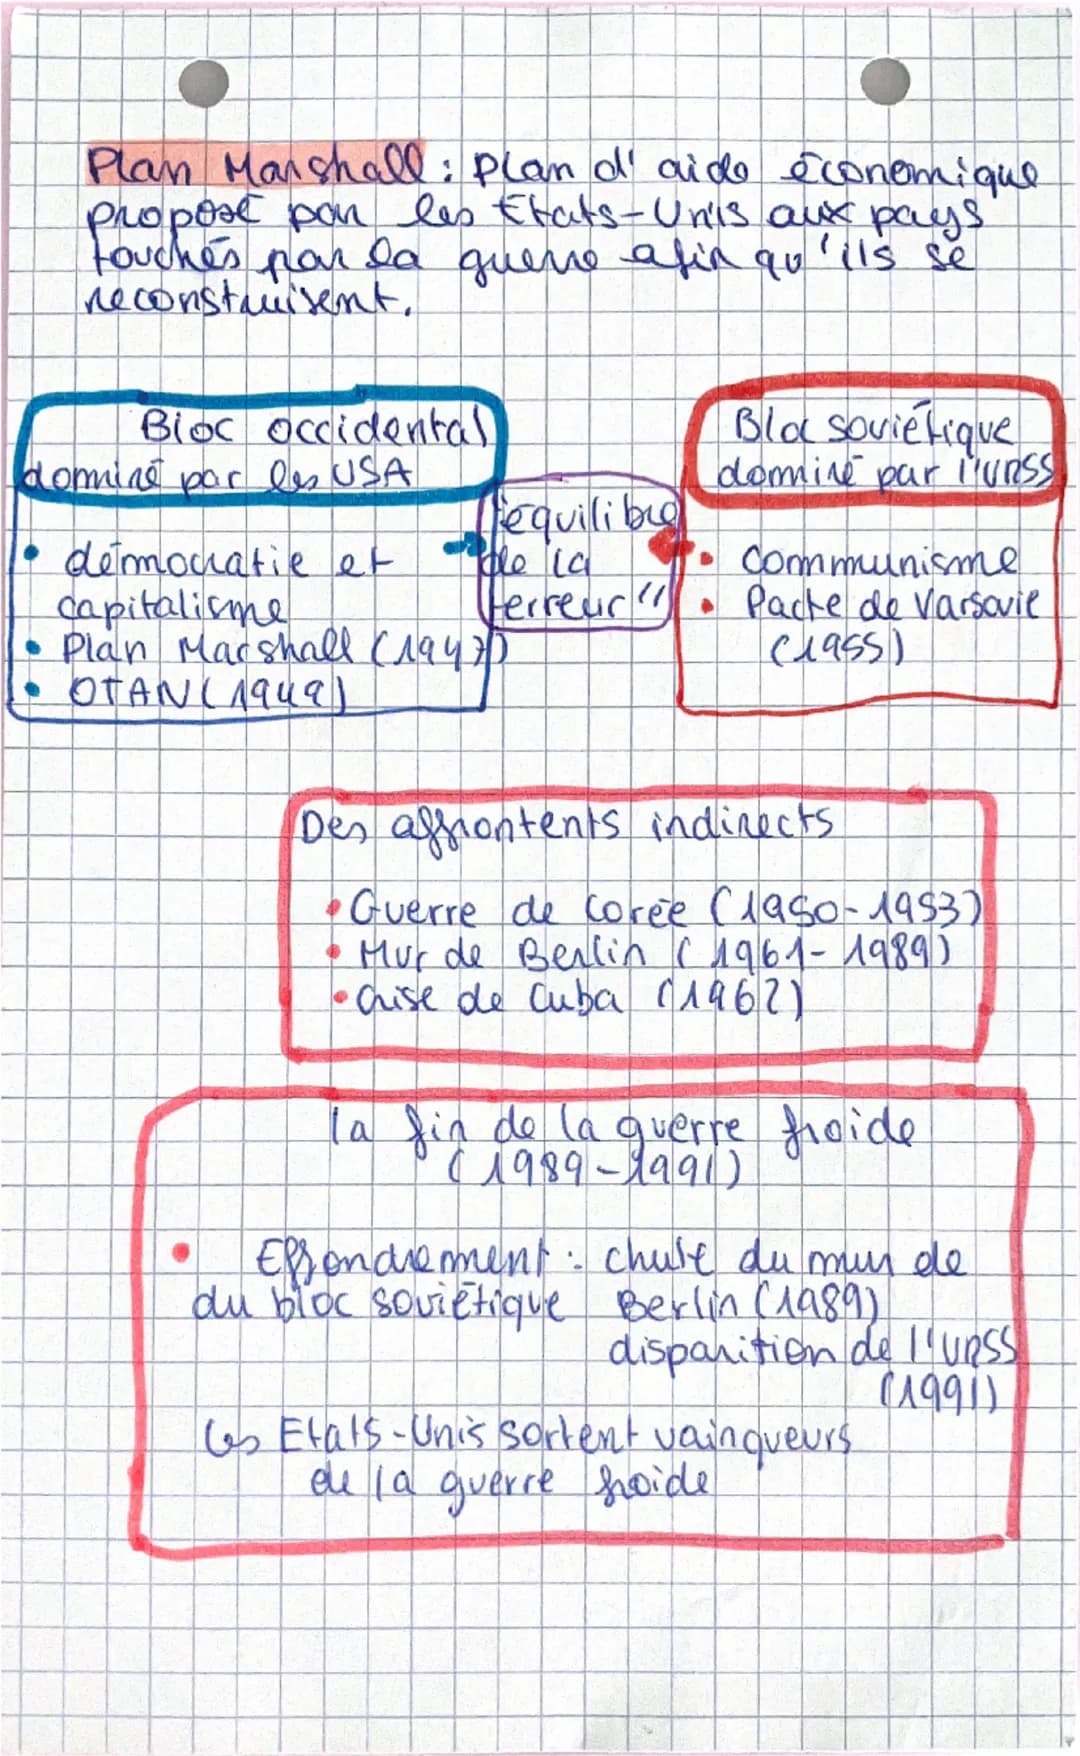 Plan Marshall : Plan d'aide économique
proposé par les Etats-Unis aux pays
touchés par la guerre afin qu'ils se
reconstruisent.
Bloc occidental
dominé par les USA
• démocratie et
capitalisme
• Plan Marshall (1947)
• OTAN (1949)
"équilibre
de la
terreur"
Bloc soviétique
dominé par l'URSS
• Communisme
• Pacte de Varsovie
(1955)
Des affrontents indirects
• Guerre de Corée (1950-1953)
• Mur de Berlin (1961-1989)
• Crise de Cuba (1962)
la fin de la guerre froide
(1989-1991)
• Effondrement : chute du mur de
du bloc soviétique Berlin (1989)
disparition de l'URSS
(1991)
Les Etats-Unis sortent vainqueurs
de la guerre froide